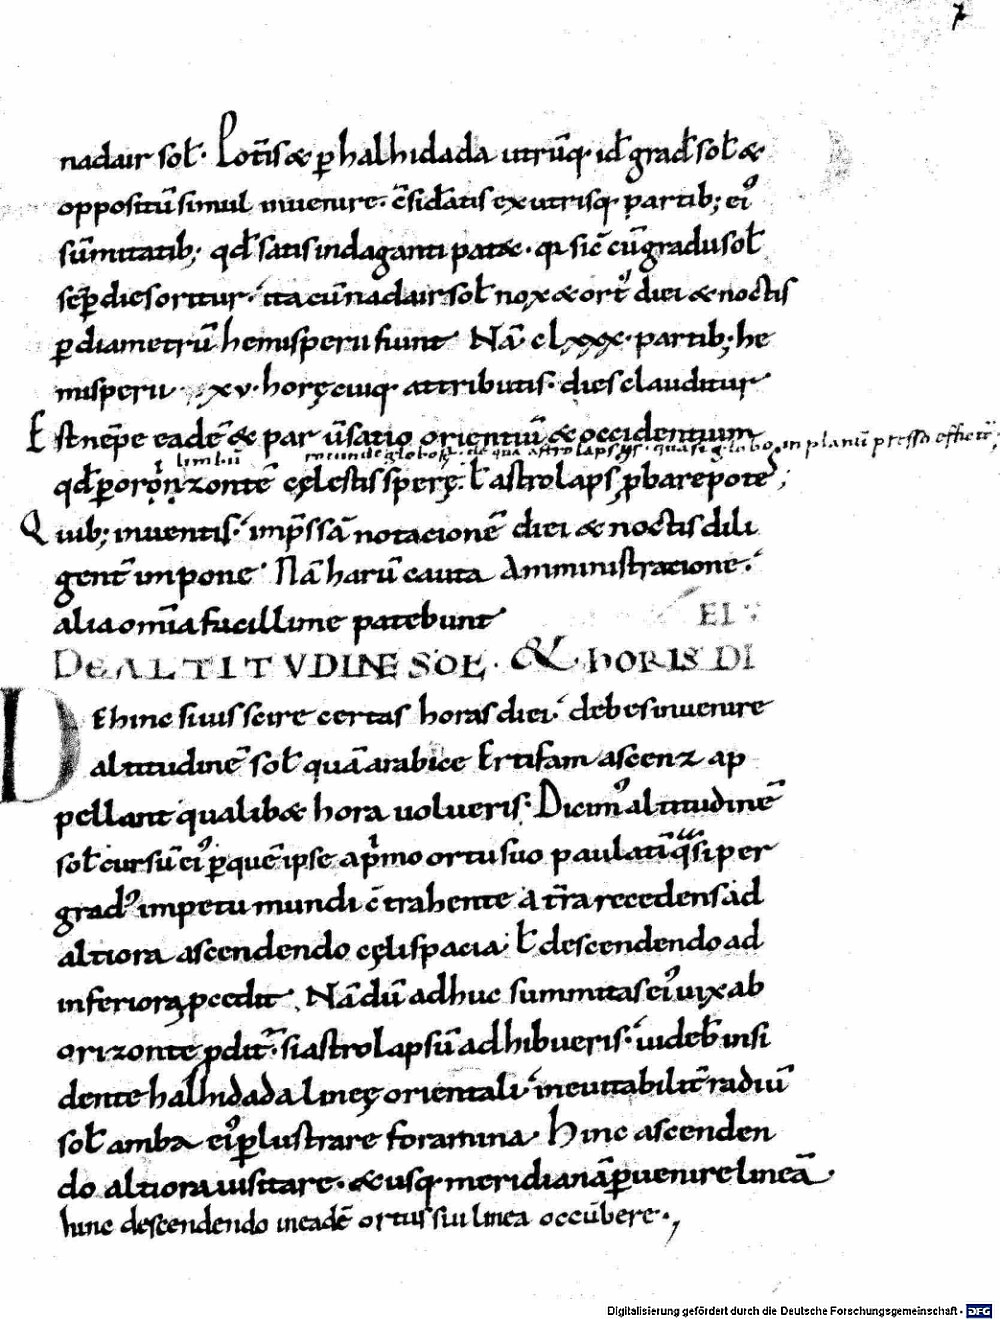 7
nadair sol̄. Potīs & ꝑ halhidada utrūq. id̄ grad̄ sol̄ &
oppositū simul inuenire. c̄sid̄atis ex utrisq. partib; ei᾿
sūmitatib; qd̄ satis indaganti patæ. qi sic̄ cū gradu sol̄
sēꝑ dies oritur. ita cū nadair sol̄ nox & ort᾿ diei & noctis
ꝑ diametrū hemisperii fiunt. Nā clxxx. partib; he
misperii. xv. horę cuiq. attributis. dies clauditur
Est nēpe eadē & par ūsatio orientiū & occidentium
rotunde globo. de qua astrolapsus. quasi globo in planū presso effici
qd̄ ꝑ orizontē cęlestis sperę. ł astrolapsi ꝓbare pote᾿;
Quib; inuentis. imp̄ssā notacionē diei & noctis dili
gent̄ inpone. Nā harū cauta Amministracione.
alia om̄ia facillime patebunt
EI
DE ALTITVDINE SOL. & HORIS DI
DEhinc si uis scire certas horas diei. debes inuenire
altitudinē sol̄ quā arabice Ertifam ascenz ap
pellant qualibæ hora uolueris. Dicim᾿ altitudinē
sol̄ cursū ei᾿ ꝑ quē ipse a p̍mo ortu suo paulatī q̄si per
grad᾿ impetu mundi c̄trahente a t̄ra recedens ad
altiora ascendendo cęli spacia. ł descendendo ad
inferiora ꝓcedit. Nā dū adhuc summitas ei᾿ uix ab
orizonte ꝓdit̄. si astrolapsū adhibueris. uideb̄ insi
dente halhidada lineę orientali ineuitabilit̄ radiū
sol̄ amba ei᾿ ꝑlustrare foramina. Hinc ascenden
do altiora uisitare. & usq. meridianā ꝑuenire lineā.
hinc descendendo in eadē ortus sui linea occūbere.
Digitalisierung gefördert durch die Deutsche Forschungsgemeinschaft - DFG